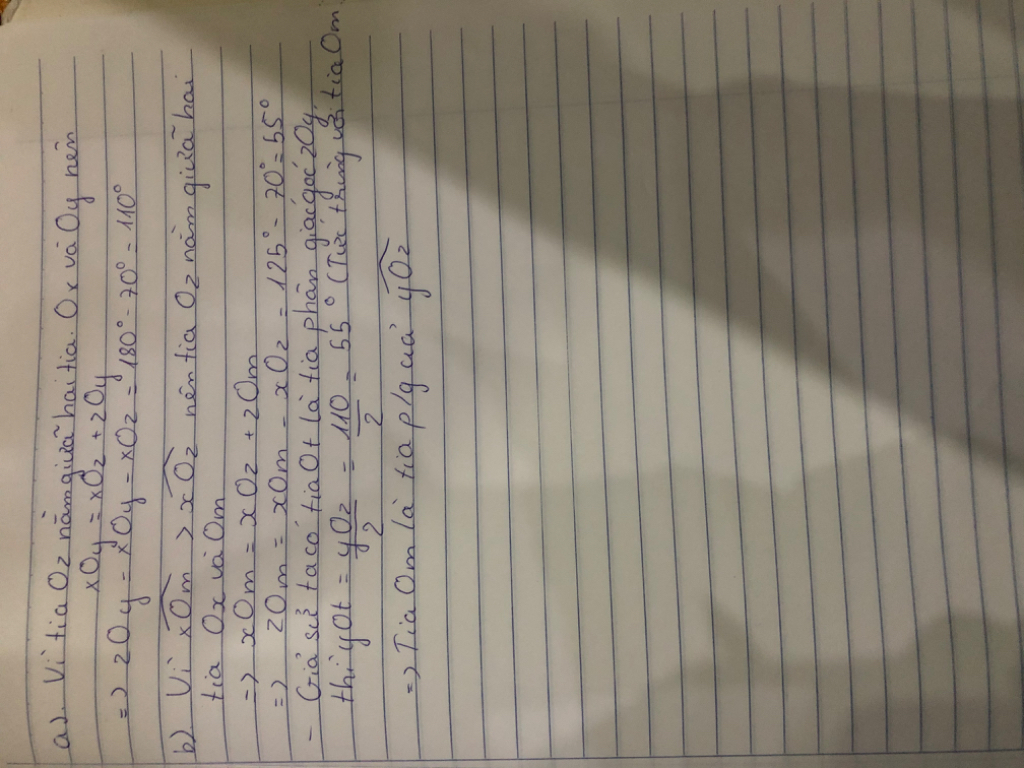 a). Vì tia Oz nằm giữa hai tia Ox và Oy nên
xOy = xOz + zOy
=> zOy = xOy - xOz = 180° - 70° = 110°
b) Vì xOm > xOz nên tia Oz nằm giữa hai
tia Ox và Om
=> xOm = xOz + zOm
=> zOm = xOm - xOz = 125° - 70° = 55°
- Giả sử ta có tia Ot là tia phân giác góc zOy
thì yOt = yOz/2 = 110/2 = 55° (Tức trùng với tia Om)
=> Tia Om là tia p/g của yOz